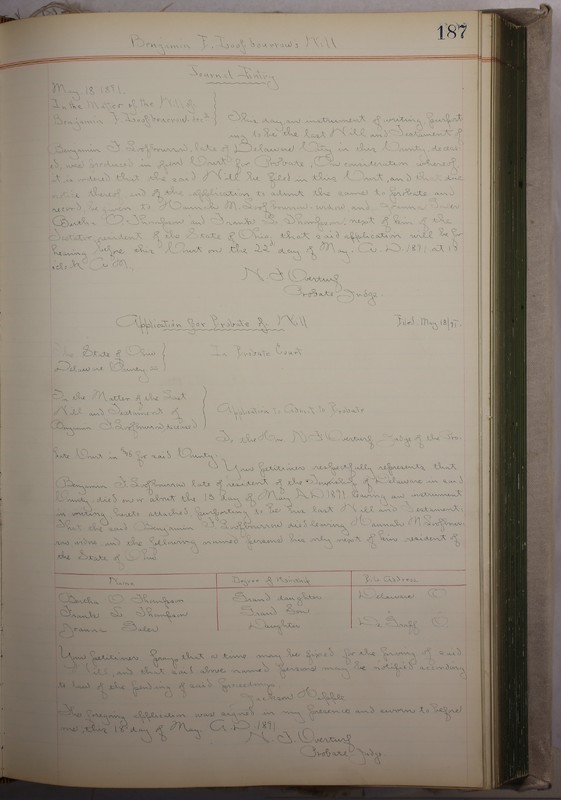 187
Benjamin F. Loofbourrow's Will
Journal Entry
May 18, 1891.
In the Matter of the Will of
Benjamin F. Loofbourrow dec'd
This day an instrument of writing purport
ing to be the last Will and Testament of
Benjamin F. Loofbourrow, late of Delaware City in this County, deceas
ed, was produced in open Court for Probate, On consideration whereof,
it is ordered that the said Will be filed in this Court, and that due
notice thereof and of the application to admit the same to probate and
record, be given to Hannah M. Loofbourrow widow and
Bertha O. Thompson and Frank L. Thompson, next of kin of the
testator, resident of the State of Ohio, that said application will be for
hearing before this Court on the 22d day of May A.D. 1891 at 10
o'clock A.M.
N. F. Overturf
Probate Judge.
Application for Probate of Will
Filed May 18/91.
The State of Ohio
Delaware County ss
In Probate Court
In the Matter of the Last
Will and Testament of
Benjamin F. Loofbourrow, deceased
Application to Admit to Probate
To the Hon. N. F. Overturf, Judge of the Pro-
bate Court in & for said County.
Your petitioner respectfully represents that
Benjamin F. Loofbourrow late of resident of the Township of Delaware in said
County died on or about the 13 day of May A.D. 1891 leaving an instrument
in writing hereto attached, purporting to be his last Will and Testament:
That the said Benjamin F. Loofbourrow died leaving Hannah M. Loofbour
row widow and the following named persons his only next of kin resident of
the State of Ohio
Name Degree of Kinship P.O. Address
Bertha O. Thompson Grand daughter Delaware O.
Frank L. Thompson Grand Son
Daughter O.
Your petitioner prays that a time may be fixed for the proving of said
Will, and that said above named persons may be notified according
to law of the pending of said proceedings.
The foregoing application was signed in my presence and sworn to before
me, this 18 day of May A.D. 1891
N. F. Overturf
Probate Judge.